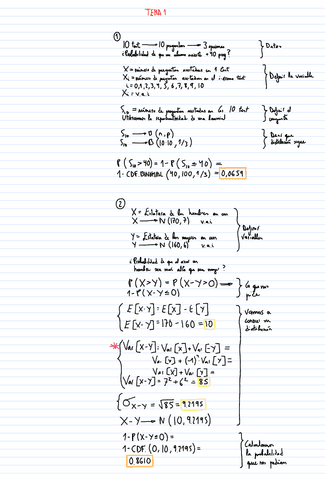 TEMA 1
①
10 test → 10 preguntas → 3 opciones
¿Probabilidad de que un alumno acierte +40 preg?
} Datos
X = número de preguntas acertadas en 1 test
Xi = número de preguntas acertadas en el i-ésimo test
i = 0,1,2,3,4,5,6,7,8,9,10
X = v.a.i
} Definir la variable
S₁₀ = número de preguntas acertadas en los 10 test
Utilizamos la reproductividad de una binomial
} Definir el conjunto
S₁₀ → B (n, p)
S₁₀ → B (10·10, 1/3)
} Decir que distribución sigue
P (S₁₀ > 40) = 1 - P (S₁₀ ≤ 40) =
1 - CDF. BINOMIAL (40, 100, 1/3) = 0,0659
②
X = Estatura de los hombres en cm
X → N (170, 7) v.a.i
Y = Estatura de las mujeres en cm
Y → N (160, 6) v.a.i
} Definir variables
¿Probabilidad de que al azar un
hombre sea más alto que una mujer?
P (X > Y) = P (X - Y > 0) →
1 - P (X - Y ≤ 0)
} Lo que nos piden
E [X - Y] = E[X] - E[Y]
E [X - Y] = 170 - 160 = 10
* Var [X - Y] = Var [X] + Var [-Y] =
Var [X] + (-1)² Var [Y] =
Var [X] + Var [Y] =
Var [X - Y] = 7² + 6² = 85
σ X-Y = √85 = 9,2195
X - Y → N (10, 9,2195)
} Vamos a conocer su distribución
1 - P (X - Y ≤ 0) =
1 - CDF (0, 10, 9,2195) =
0,8610
} Calculamos la probabilidad que nos pedían